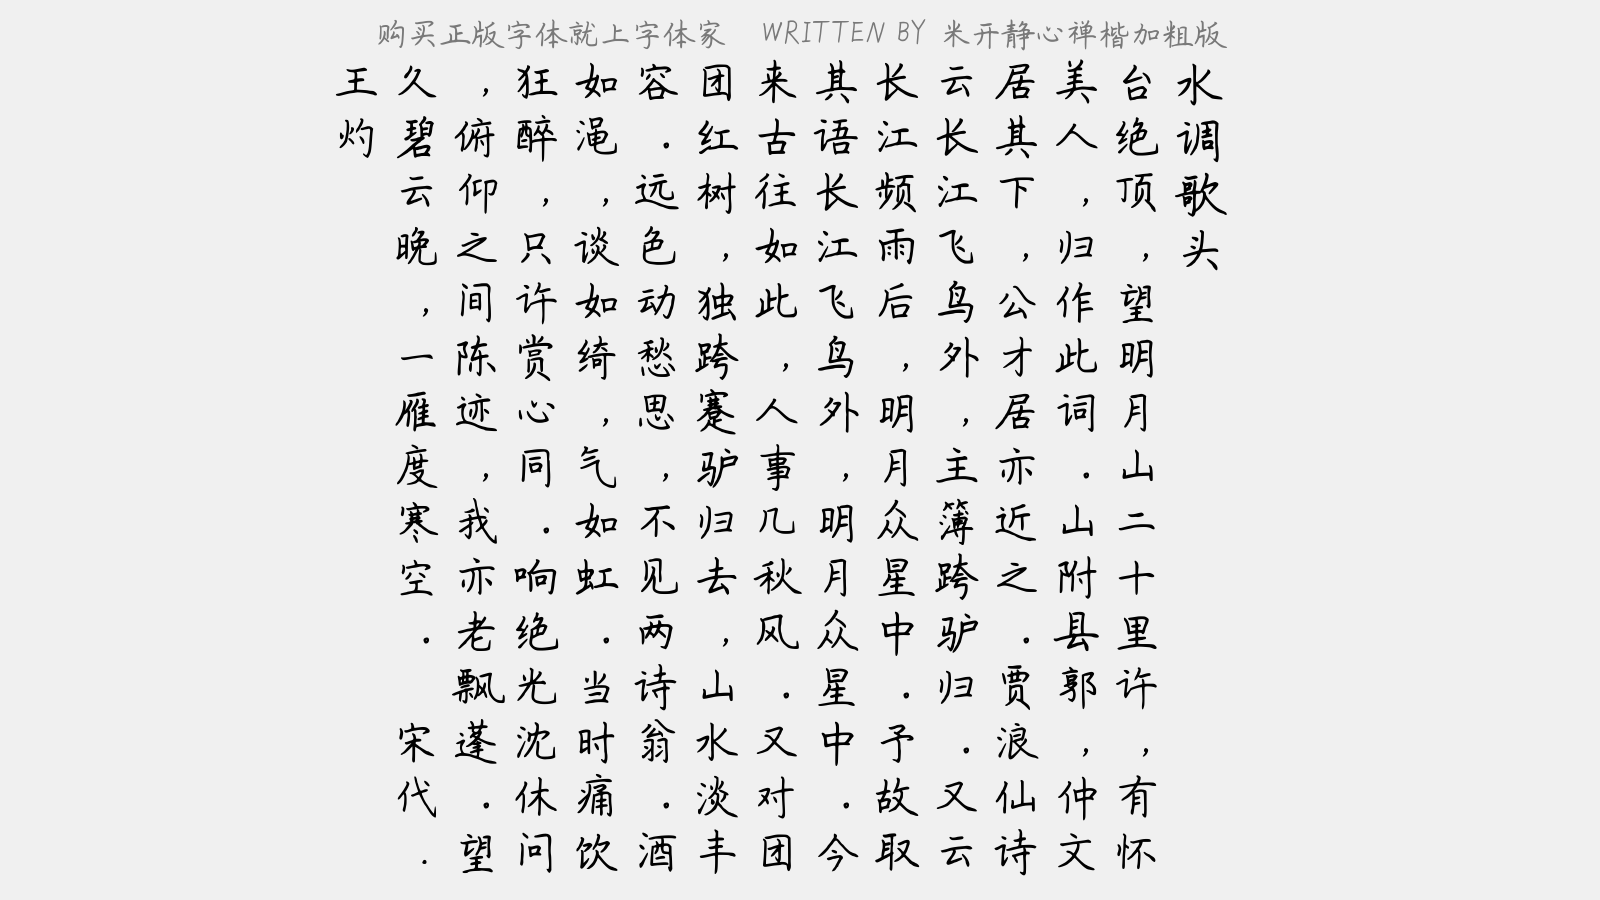 购买正版字体就上字体家 WRITTEN BY 米开静心禅楷加粗版
水调歌头
台绝顶，望明月山二十里许，有怀
美人，归作此词．山附县郭，仲文
居其下，公才居亦近之．贾浪仙诗
云长江飞鸟外，主簿跨驴归．又云
长江频雨后，明月众星中．予故取
其语长江飞鸟外，明月众星中．今
来古往如此，人事几秋风．又对团
团红树，独跨蹇驴归去，山水淡丰
容．远色动愁思，不见两诗翁．酒
如渑，谈如绮，气如虹．当时痛饮
狂醉，只许赏心同．响绝光沈休问
，俯仰之间陈迹，我亦老飘蓬．望
久碧云晚，一雁度寒空． 宋代．
王灼